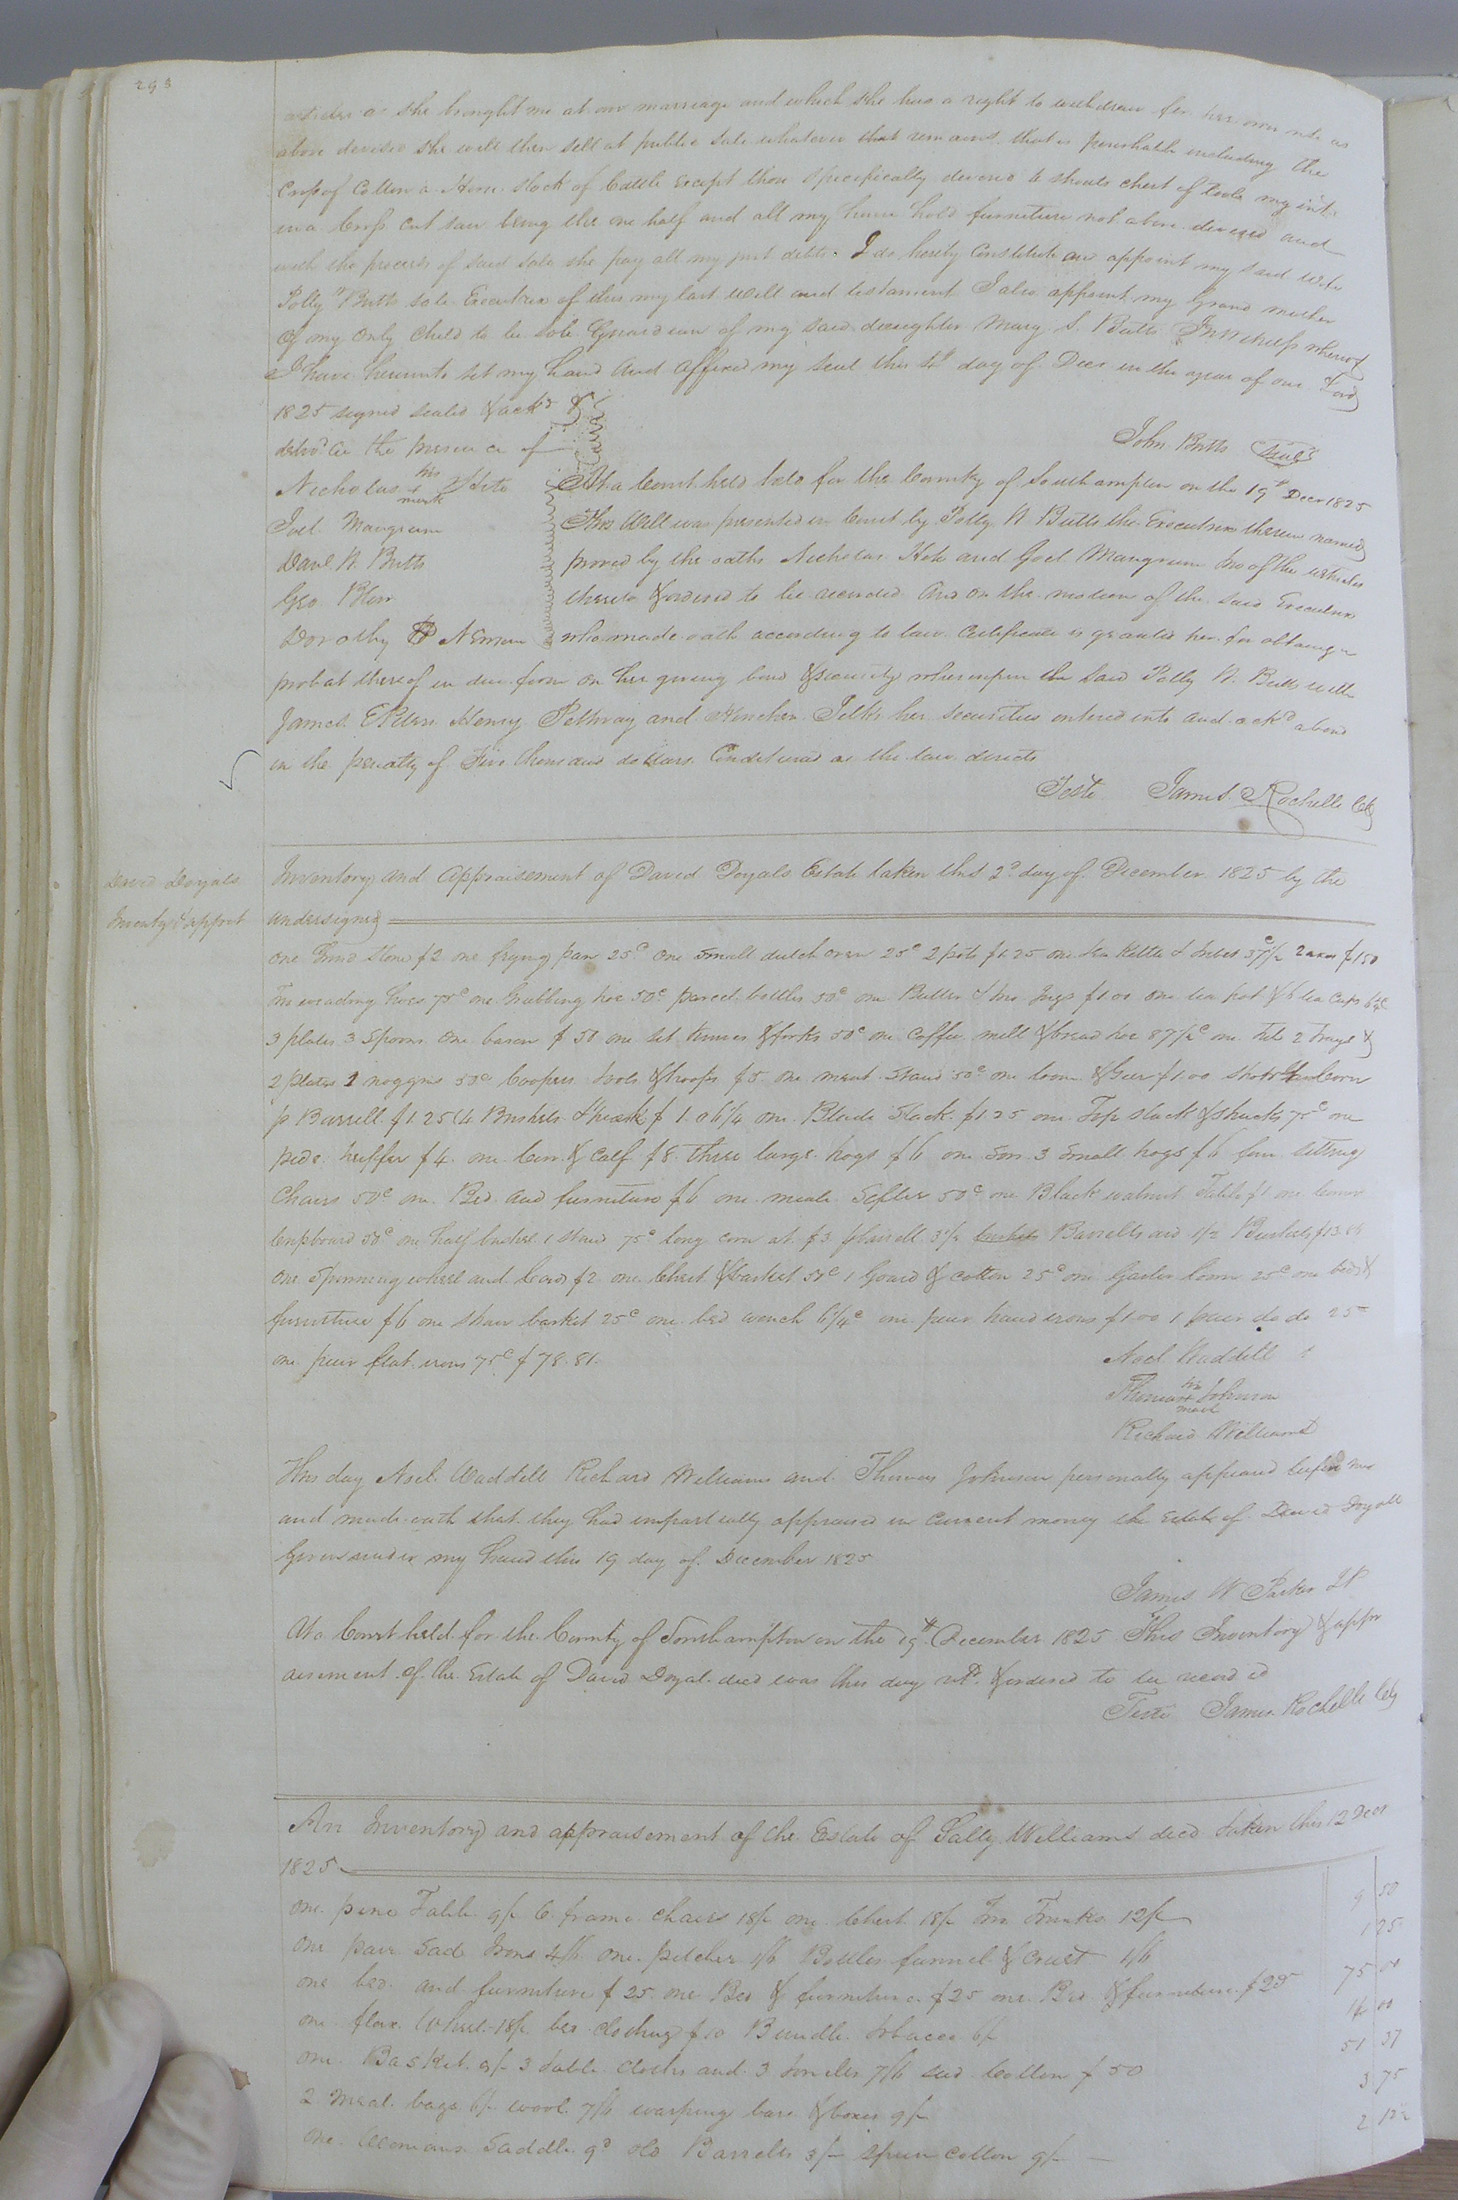 293
articles as she brought me at our marriage and which she has a right to withdraw for her own use as
above devised she will then sell at public sale whatever that remains that is perishable including the
Crop of Cotton a Horse stock of Cattle except those specifically devised & shoats chest of tools my int:
in a Cross cut saw being the one half and all my house hold furniture not above devised and
with the proceeds of said sale she pay all my just debts. I do hereby Constitute and appoint my said wife
Polly N Butts sole Executrix of this my last will and testament I also appoint my Grand mother
of my only child to be sole Guardian of my said daughter Mary S. Butts In Witness whereof
I have hereunto set my hand and affixed my seal this day of Decr in the year of our Lord
1825 signed sealed & ackd &
delivd in the presence of
John Butts Seal
Nicholas his + mark Hite
Joel Mangrum
Danl N. Butts
Geo. Blow
Dorothy Newsum
At a Court held for the County of Southampton on the 19th Decr 1825
This Will was presented in Court by Polly N Butts the Executrix therein named
proved by the oaths Nicholas Hite and Joel Mangrum two of the witnesses
thereto & ordered to be recorded And on the motion of the said Executrix
who made oath according to law Certificate is granted her for obtaining a
probat thereof in due form on her giving bond & security whereupon the said Polly N. Butts with
James Henry Pethway and her securities entered into and ackd a bond
in the penalty of Five thousand dollars Conditioned as the law directs
Teste James Rochelle Clk
David Doyals
Inventy & appmt
Inventory and Appraisement of David Doyals Estate taken this 2d day of December 1825 by the
undersigned
one Grind stone $2 one frying pan 25c one small dutch oven 25c 2 pots $1.25 one tea kettle & 37½ 2 axes $1.50
Two weeding hoes 75c one Grubbing hoe 50c parcel bottles 50c one Butter & two Jugs $1.00 one tea pot & 6 tea cups 6¼c
3 plates 3 spoons one bason $.50 one set knives & forks 50c one coffee mill & broad hoe 87½c one 2 Trays &
2 plates 1 noggins 50c Coopers tools & hoops $5. one meat stand 50c one loom & Geer $1.00 short Corn
p Barrell $1.25 (4 Bushels wheat $1.06¼ one Blade Stack $1.25 one Top stack & shucks 75c one
pide heiffer $4. one Cow & Calf $8. three large hogs $6 one Sow 3 small hogs $6 four sitting
Chairs 50c one Bed and furniture $6 one meal Sifter 50c one Black walnut Table $1 one
Cupboard 50c one half bushel 1 stand 75c long corn at $3 pbarrell 3½ Barrells and 1½ Bushels
One Spinning wheel and Cards $2 one Chest & basket 50c 1 Gourd & cotton 25c one Garter loom 25c one bed &
furniture $6 one straw basket 25c one bed wench 6¼c one pair hand irons $1.00 1 pair do do 25
one pair flat irons 75c $78.81.
Noel Waddell
Thomas his + mark Johnson
Richard Williams
This day Noel Waddell Richard Williams and Thomas Johnson personally appeared before me
and made oath that they had impartially appraised in current money the Estate of David Doyall
Given under my hand this 19 day of December 1825
James W Parker JP
At a Court held for the County of Southampton on the 19th December 1825 This Inventory & appr
aisement of the Estate of David Doyal decd was this day retd & ordered to be recorded
Teste James Rochelle Clk
An Inventory and appraisement of the Estate of Sally Williams decd taken this 12 Decr
1825
one pine Table 9/- 6 frame chairs 18/- one Chest 18/- Two Trunks 12/- 9 50
one pair Sad Irons 4/6 one pitcher 1/6 Bottles funnel & Cruet 1/6 1 25
one bed and furniture $25 one Bed & furniture $25 one Bed & furniture $25 75 00
one flax Wheel 18/- bed clothing $10 Bundle tobacco 6/- 14 00
one Basket 3/- 3 table cloths and 3 towels 7/6 seed Cotton $50 51 37
2 meal bags 6/- wool 7/6 warping bars & boxes 9/- 3 75
one Womans Saddle 9d old Barrells 3/- spun cotton 9/- 2 12½